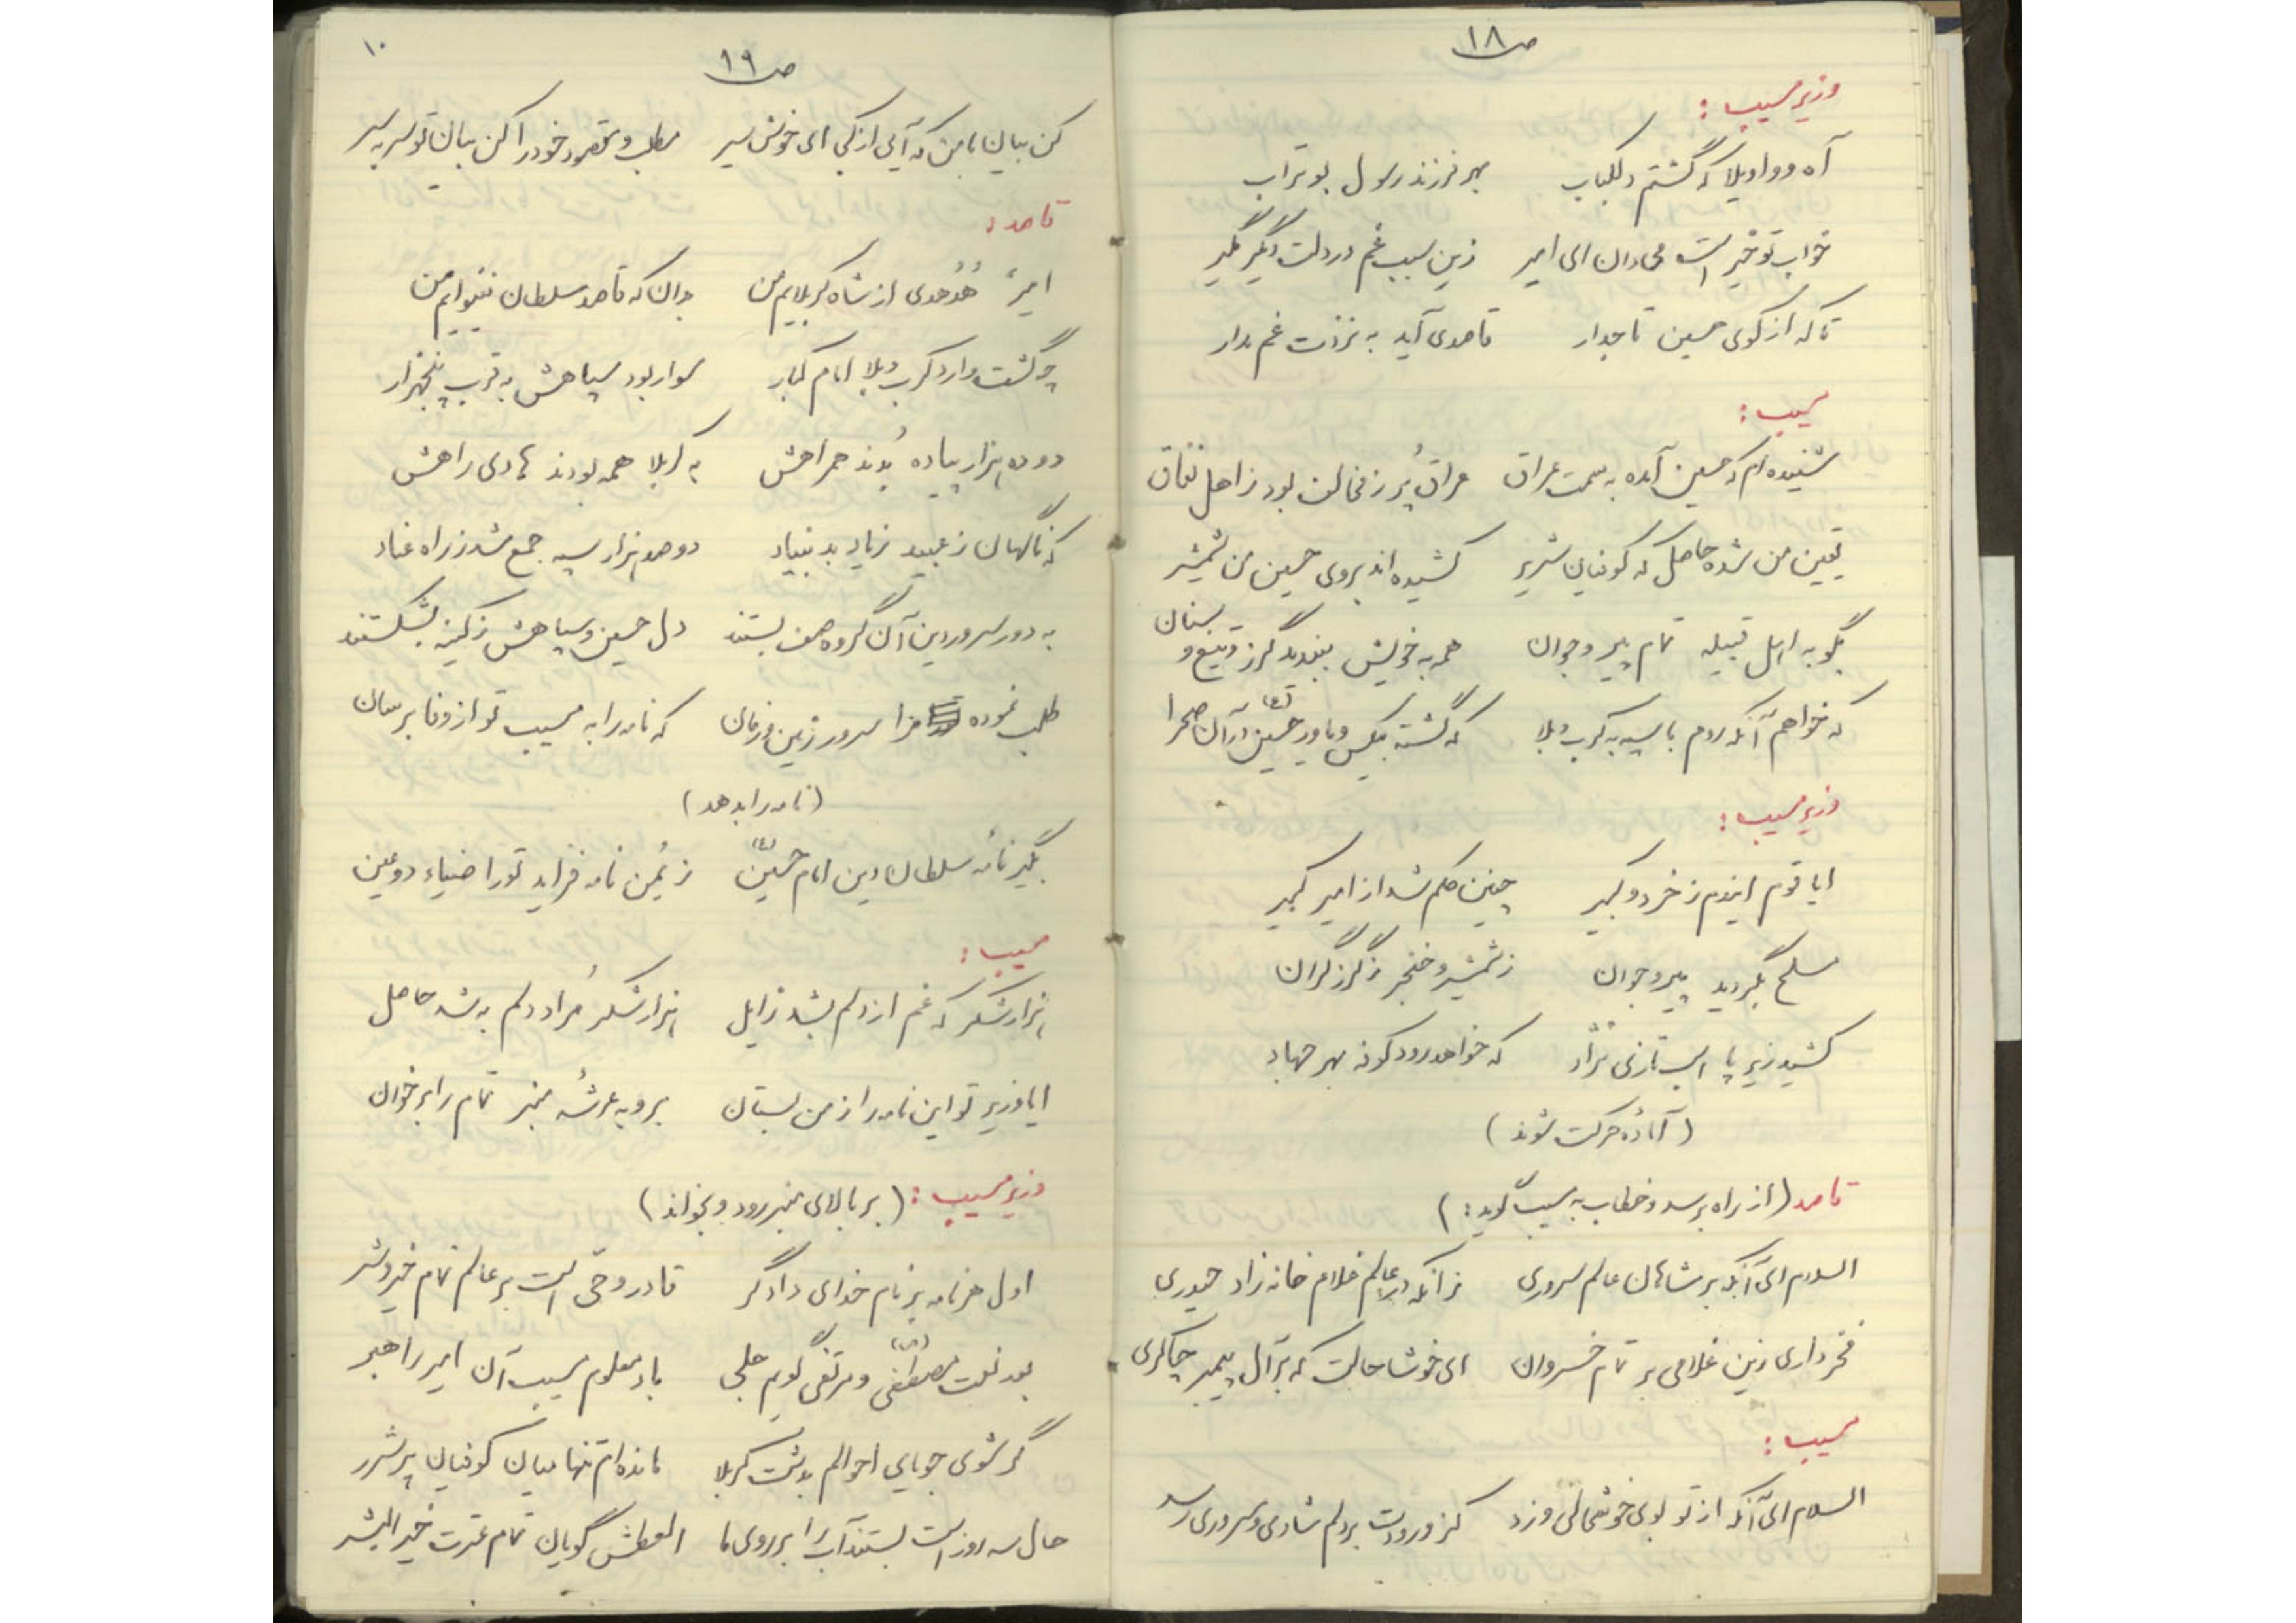 ص ۱۸
وزیر مسیب :
آه و واویلا که گشتم دلکباب بهر فرزند رسول بوتراب
خواب تو خیر است می دان ای امیر زین سبب غم در دلت دیگر مگیر
تا که از کوی حسین تاجدار قاصدی آید به نزدت غم مدار
مسیب :
شنیده ام که حسین آمده به سمت عراق عراق پُر ز مخالف بود ز اهل نفاق
یقین من شده حاصل که کوفیان شریر کشیده اند بروی حسین من شمشیر
بگو به اهل قبیله تمام پیر و جوان همه به خویش ببندید گرز و تیغ و سنان
که خواهم آنکه روم با سپه به کرب و بلا که گشته بیکس و یاور حسین (ع) در آن صحرا
وزیر مسیب :
ایا قوم ایندم ز خرد و کبیر چنین حکم شد از امیر کبیر
مسلح بگردید پیر و جوان ز شمشیر و خنجر ز گرز گران
کشید زیر پا اسب تازی نژاد که خواهد رود کوفه بهر جهاد
(آمادهٔ حرکت شوند)
قاصد (از راه برسد و خطاب به مسیب گوید :)
السلام ای آنکه بر شاهان عالم سروری زانکه در عالم غلام خانه زاد حیدری
فخر داری زین غلامی بر تمام خسروان ای خوشا حالت که بر آل پیمبر چاکری
مسیب :
السلام ای آنکه از تو بوی خوشحالی وزد کز ورودت بر دلم شادی و سروری رسد
ص ۱۹
۱۰
کن بیان با من که آیی از کجا ای خوش سیر مطلب و مقصود خود را کن بیان تو سر به سر
قاصد :
امیر هُدهُدی از شاه کربلایم من بدان که قاصد سلطان نینوایم من
چو گشت وارد کرب و بلا امام کبار سوار بود سپاهش به قرب پنجهزار
دو ده هزار پیاده بُدند همراهش به کربلا همه بودند هادی راهش
که ناگهان ز عبید زیاد بد بنیاد دو صد هزار سپه جمع شد ز راه عناد
به دور سرور دین آن گروه صف بستند دل حسین و سپاهش ز کینه بشکستند
طلب نموده مرا سرور زمین و زمان که نامه را به مسیب تو از وفا برسان
(نامه را بدهد)
بگیر نامهٔ سلطان دین امام حسین (ع) ز یُمن نامه فزاید تو را ضیاء دو عین
مسیب :
هزار شکر که غم از دلم بشد زایل هزار شکر مُراد دلم بشد حاصل
ایا وزیر تو این نامه را از من بستان برو به عرشهٔ منبر تمام را برخوان
وزیر مسیب : (بر بالای منبر رود و بخواند)
اول هر نامه بر نام خدای دادگر قادر و حی است بر عالم تمام خیر و شر
بعد نعت مصطفی (ص) و مرتضی گویم جلی باد معلوم مسیب آن امیر راهبر
گر شوی جویای احوالم بدشت کربلا مانده ام تنها میان کوفیان پر شرر
حال سه روز است بستند آب را بر روی ما العطش گویان تمام عترت خیر البشر